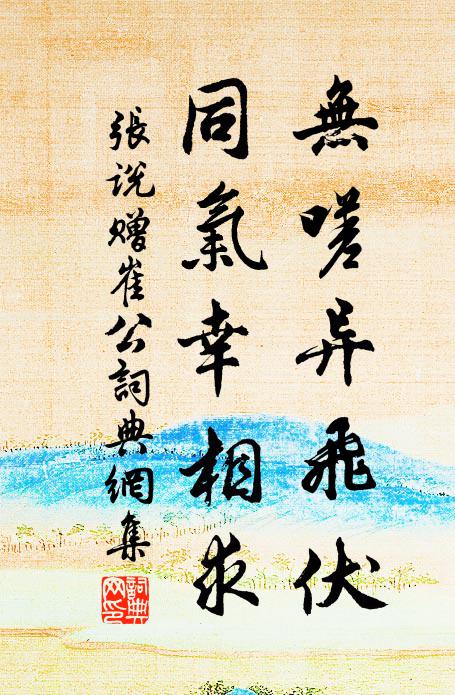 無嗟异飛伏
同氣幸相求
張説贈崔公詞典網集
詞典網印